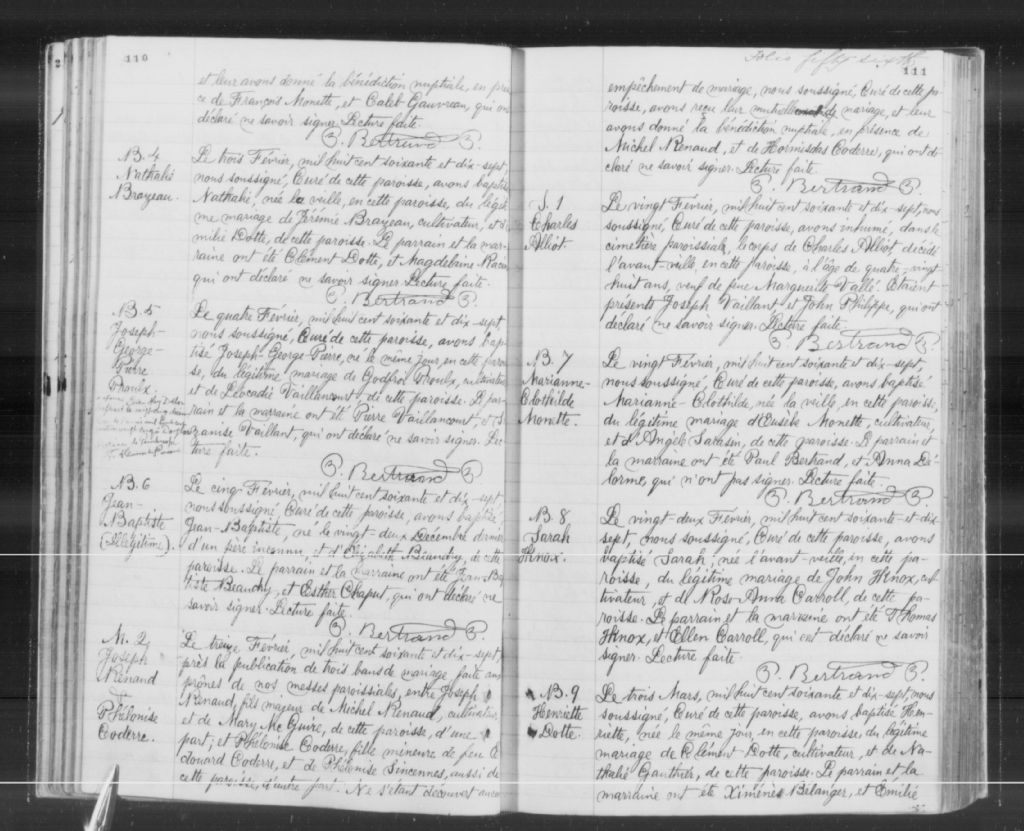 110
et leur avons donné la bénédiction nuptiale, en
de François Monette, et Caleb Gauvreau, qui ont
déclaré ne savoir signer. Lecture faite.
P. Bertrand P.
B. 4
Nathalie
Brayeau.
Le trois Février, mil huit cent soixante et dix-sept,
nous soussigné, Curé de cette paroisse, avons baptisé
Nathalie, née la veille, en cette paroisse, du légiti
me mariage de Jérémie Brayeau, cultivateur, et
milie Dotte, de cette paroisse. Le parrain et la mar-
raine ont été Clément Dotte, et Magdeleine
qui ont déclaré ne savoir signer. Lecture faite.
P. Bertrand P.
B. 5
Joseph-
George-
Pierre
Proulx.
Le quatre Février, mil huit cent soixante et dix-sept,
nous soussigné, Curé de cette paroisse, avons bap-
tisé Joseph-George-Pierre, né le même jour, en cette paroi
se, du légitime mariage de Godfroi Proulx, cultivateur
et de Léocadie Vaillancourt, de cette paroisse. Le par
rain et la marraine ont été Pierre Vaillancourt, et
Vaillant, qui ont déclaré ne savoir signer. Lec-
ture faite.
P. Bertrand P.
B. 6
Jean-
Baptiste
(Illégitime).
Le cinq Février, mil huit cent soixante et dix-sept
nous soussigné, Curé de cette paroisse, avons baptisé
Jean-Baptiste, né le vingt-deux Décembre dernier
d'un père inconnu, et d'Elizabeth Beaudry, de cette
paroisse. Le parrain et la marraine ont été Jean-Ba
tiste Beaudry, et Esther Chaput, qui ont déclaré ne
savoir signer. Lecture faite.
P. Bertrand P.
M. 2
Joseph
Renaud
et
Phélonise
Coderre.
Le treize Février, mil huit cent soixante et dix-sept,
près la publication de trois bans de mariage, faite aux
prônes de nos messes paroissiales, entre Joseph
Renaud, fils majeur de Michel Renaud, cultivateur,
et de Mary Mc Guire, de cette paroisse, d'une
part; et Phélonise Coderre, fille mineure de feu E
douard Coderre, et de Phélonise Sincennes, aussi de
cette paroisse, d'autre part. Ne s'étant découvert aucun
Folio fifty sixth
111
empêchement de mariage, nous soussigné, Curé de cette pa-
roisse, avons reçu leur mutuel de mariage, et leur
avons donné la bénédiction nuptiale, en présence de
Michel Renaud, et de Hormisdas Coderre, qui ont dé-
claré ne savoir signer. Lecture faite.
P. Bertrand P.
S. 1
Charles
Alliot
Le vingt Février, mil huit cent soixante et dix-sept, nous
soussigné, Curé de cette paroisse, avons inhumé, dans le
cimetière paroissial, le corps de Charles Alliot, décédé
l'avant-veille, en cette paroisse, à l'âge de quatre-vingt-
huit ans, veuf de feue Marguerite Vallé. Etaient
présents Joseph Vaillant, et John Philippe, qui ont
déclaré ne savoir signer. Lecture faite.
P. Bertrand P.
B. 7
Marianne-
Clothilde
Monette.
Le vingt Février, mil huit cent soixante et dix-sept,
nous soussigné, Curé de cette paroisse, avons baptisé
Marianne-Clothilde, née la veille, en cette paroisse,
du légitime mariage d'Eusèbe Monette, cultivateur,
et d'Angèle Sarasin, de cette paroisse. Le parrain et
la marraine ont été Paul Bertrand, et Anna De-
lorme, qui n'ont pas signer. Lecture faite.
P. Bertrand P.
B. 8
Sarah
Knox.
Le vingt-deux Février, mil huit cent soixante-et-dix
sept, nous soussigné, Curé de cette paroisse, avons
baptisé Sarah, née l'avant-veille, en cette pa-
roisse, du légitime mariage de John Knox, cul-
tivateur, et de Rose-Anna Carroll, de cette pa-
roisse. Le parrain et la marraine ont été Thomas
Knox, et Ellen Carroll, qui ont déclaré ne savoir
signer. Lecture faite.
P. Bertrand P.
B. 9
Henriette
Dotte.
Le trois Mars, mil huit cent soixante et dix-sept, nous
soussigné, Curé de cette paroisse, avons baptisé Hen-
riette, née le même jour, en cette paroisse, du légitime
mariage de Clément Dotte, cultivateur, et de Na-
thalie Gauthier, de cette paroisse. Le parrain et la
marraine ont été Ximénès Bélanger, et Emilie